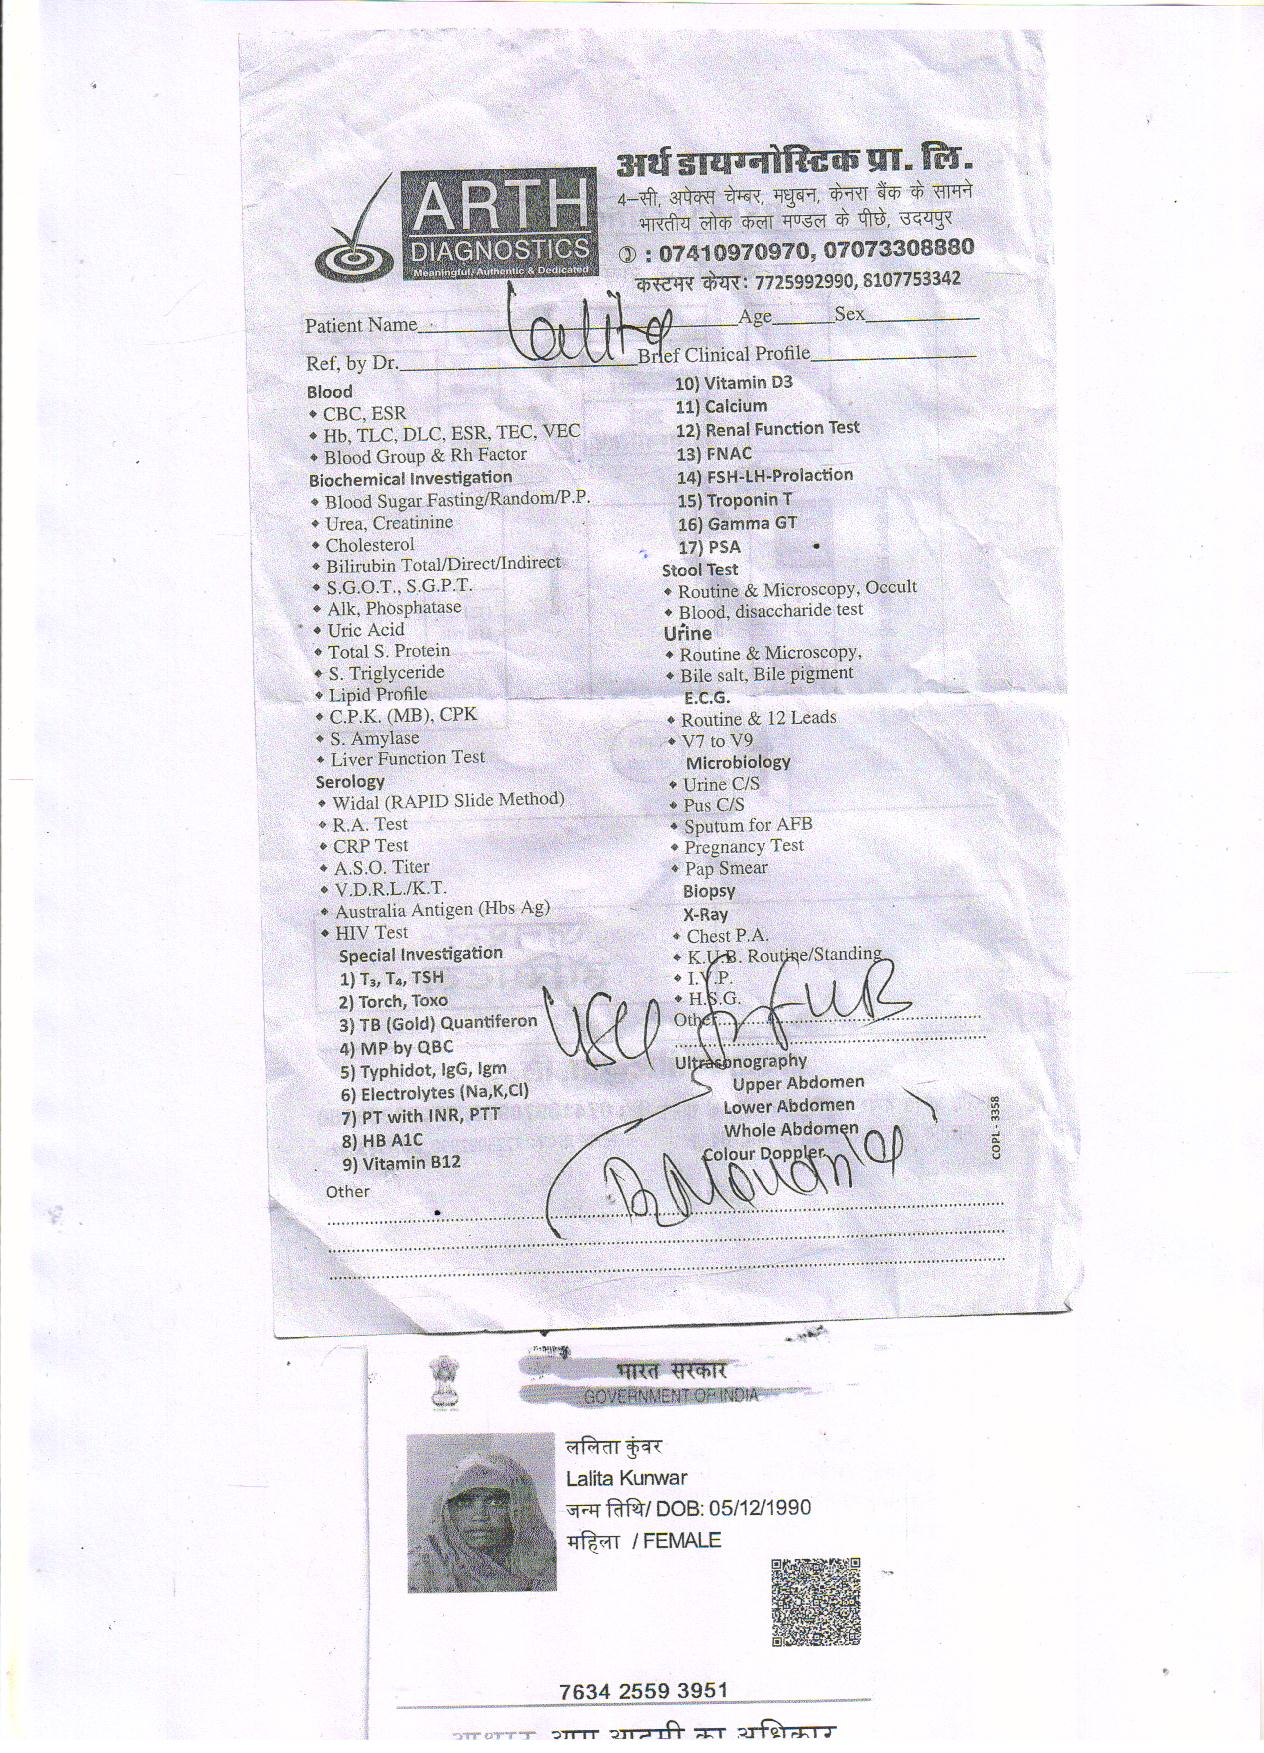 ARTH
DIAGNOSTICS
Meaningful, Authentic & Dedicated
अर्थ डायग्नोस्टिक प्रा. लि.
4–सी, अपेक्स चेम्बर, मधुबन, केनरा बैंक के सामने
भारतीय लोक कला मण्डल के पीछे, उदयपुर
: 07410970970, 07073308880
कस्टमर केयर: 7725992990, 8107753342
Patient Name Lalita Age Sex
Ref, by Dr. Brief Clinical Profile
Blood
CBC, ESR
Hb, TLC, DLC, ESR, TEC, VEC
Blood Group & Rh Factor
Biochemical Investigation
Blood Sugar Fasting/Random/P.P.
Urea, Creatinine
Cholesterol
Bilirubin Total/Direct/Indirect
S.G.O.T., S.G.P.T.
Alk, Phosphatase
Uric Acid
Total S. Protein
S. Triglyceride
Lipid Profile
C.P.K. (MB), CPK
S. Amylase
Liver Function Test
Serology
Widal (RAPID Slide Method)
R.A. Test
CRP Test
A.S.O. Titer
V.D.R.L./K.T.
Australia Antigen (Hbs Ag)
HIV Test
Special Investigation
1) T₃, T₄, TSH
2) Torch, Toxo
3) TB (Gold) Quantiferon
4) MP by QBC
5) Typhidot, IgG, Igm
6) Electrolytes (Na,K,Cl)
7) PT with INR, PTT
8) HB A1C
9) Vitamin B12
Other
10) Vitamin D3
11) Calcium
12) Renal Function Test
13) FNAC
14) FSH-LH-Prolaction
15) Troponin T
16) Gamma GT
17) PSA
Stool Test
Routine & Microscopy, Occult
Blood, disaccharide test
Urine
Routine & Microscopy,
Bile salt, Bile pigment
E.C.G.
Routine & 12 Leads
V7 to V9
Microbiology
Urine C/S
Pus C/S
Sputum for AFB
Pregnancy Test
Pap Smear
Biopsy
X-Ray
Chest P.A.
K.U.B. Routine/Standing
I.V.P.
H.S.G.
Other
Ultrasonography
Upper Abdomen
Lower Abdomen
Whole Abdomen
Colour Doppler
COPL - 3358
भारत सरकार
GOVERNMENT OF INDIA
ललिता कुंवर
Lalita Kunwar
जन्म तिथि/ DOB: 05/12/1990
महिला / FEMALE
7634 2559 3951
आधार आम आदमी का अधिकार